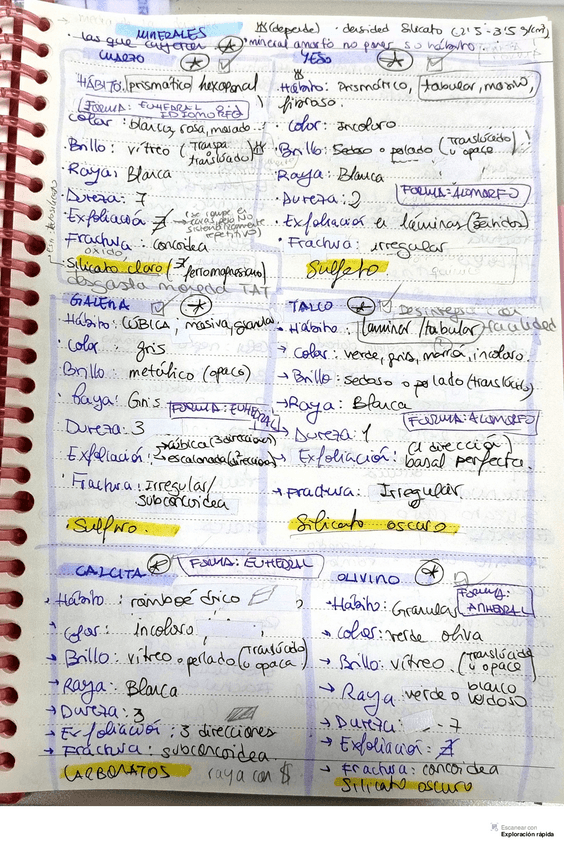 MINERALES
(depende) · densidad Silicato (2'5-3'5 g/cm³)
· las que cayeron
· mineral amorfo no poner su hábito.
CUARZO
HÁBITO: prismático hexagonal
FORMA: EUHEDRAL o IDIOMORFO
Color: blanco, rosa, morado
· Brillo: vítreo (Transpa translúcido)
· Raya: Blanca
· Dureza: 7
· Exfoliación
Fractura: concoidea
óxido
Silicato claro / ferromagnesiano
desgasta moneda
YESO
· Hábito: Prismático, tabular, masivo,
fibroso.
Color: Incoloro
· Brillo: Sedoso o perlado (Translúcido u opaco)
Raya: Blanca
· Dureza: 2
FORMA: ALOMORFO
· Exfoliación en láminas
· Fractura: irregular
Sulfato
GALENA
Hábito: CÚBICA, masiva, granular
· Color gris
Brillo: metálico (opaco)
· Raya: Gris
FORMA: EUHEDRAL
Dureza: 3
Exfoliación: cúbica (3 direcciones)
escalonada
· Fractura: Irregular/
subconcoidea
· Sulfuro.
TALCO
Desintegra con facilidad
· Hábito: laminar / tabular
→ Color: verde, gris, marrón, incoloro.
→ Brillo: sedoso o perlado (translúcido)
→ Raya: Blanca
FORMA: ALOMORFO
→ Dureza: 1
→ Exfoliación: (1 dirección)
basal perfecta.
→ Fractura: Irregular
Silicato oscuro.
CALCITA
FORMA: EUHEDRAL
→ Hábito: romboédrico
→ Color: Incoloro
→ Brillo: vítreo o perlado (Translúcido u opaca)
→ Raya: Blanca
→ Dureza: 3
→ Exfoliación: 3 direcciones
→ Fractura: subconcoidea
CARBONATOS
raya con
OLIVINO
FORMA: ANHEDRAL
→ Hábito: Granular
→ Color: verde oliva
→ Brillo: vítreo (Translúcido u opaco)
→ Raya: verde o blanco verdoso
→ Dureza: - 7
→ Exfoliación:
→ Fractura: concoidea
Silicato oscuro
Escanear con
Exploración rápida